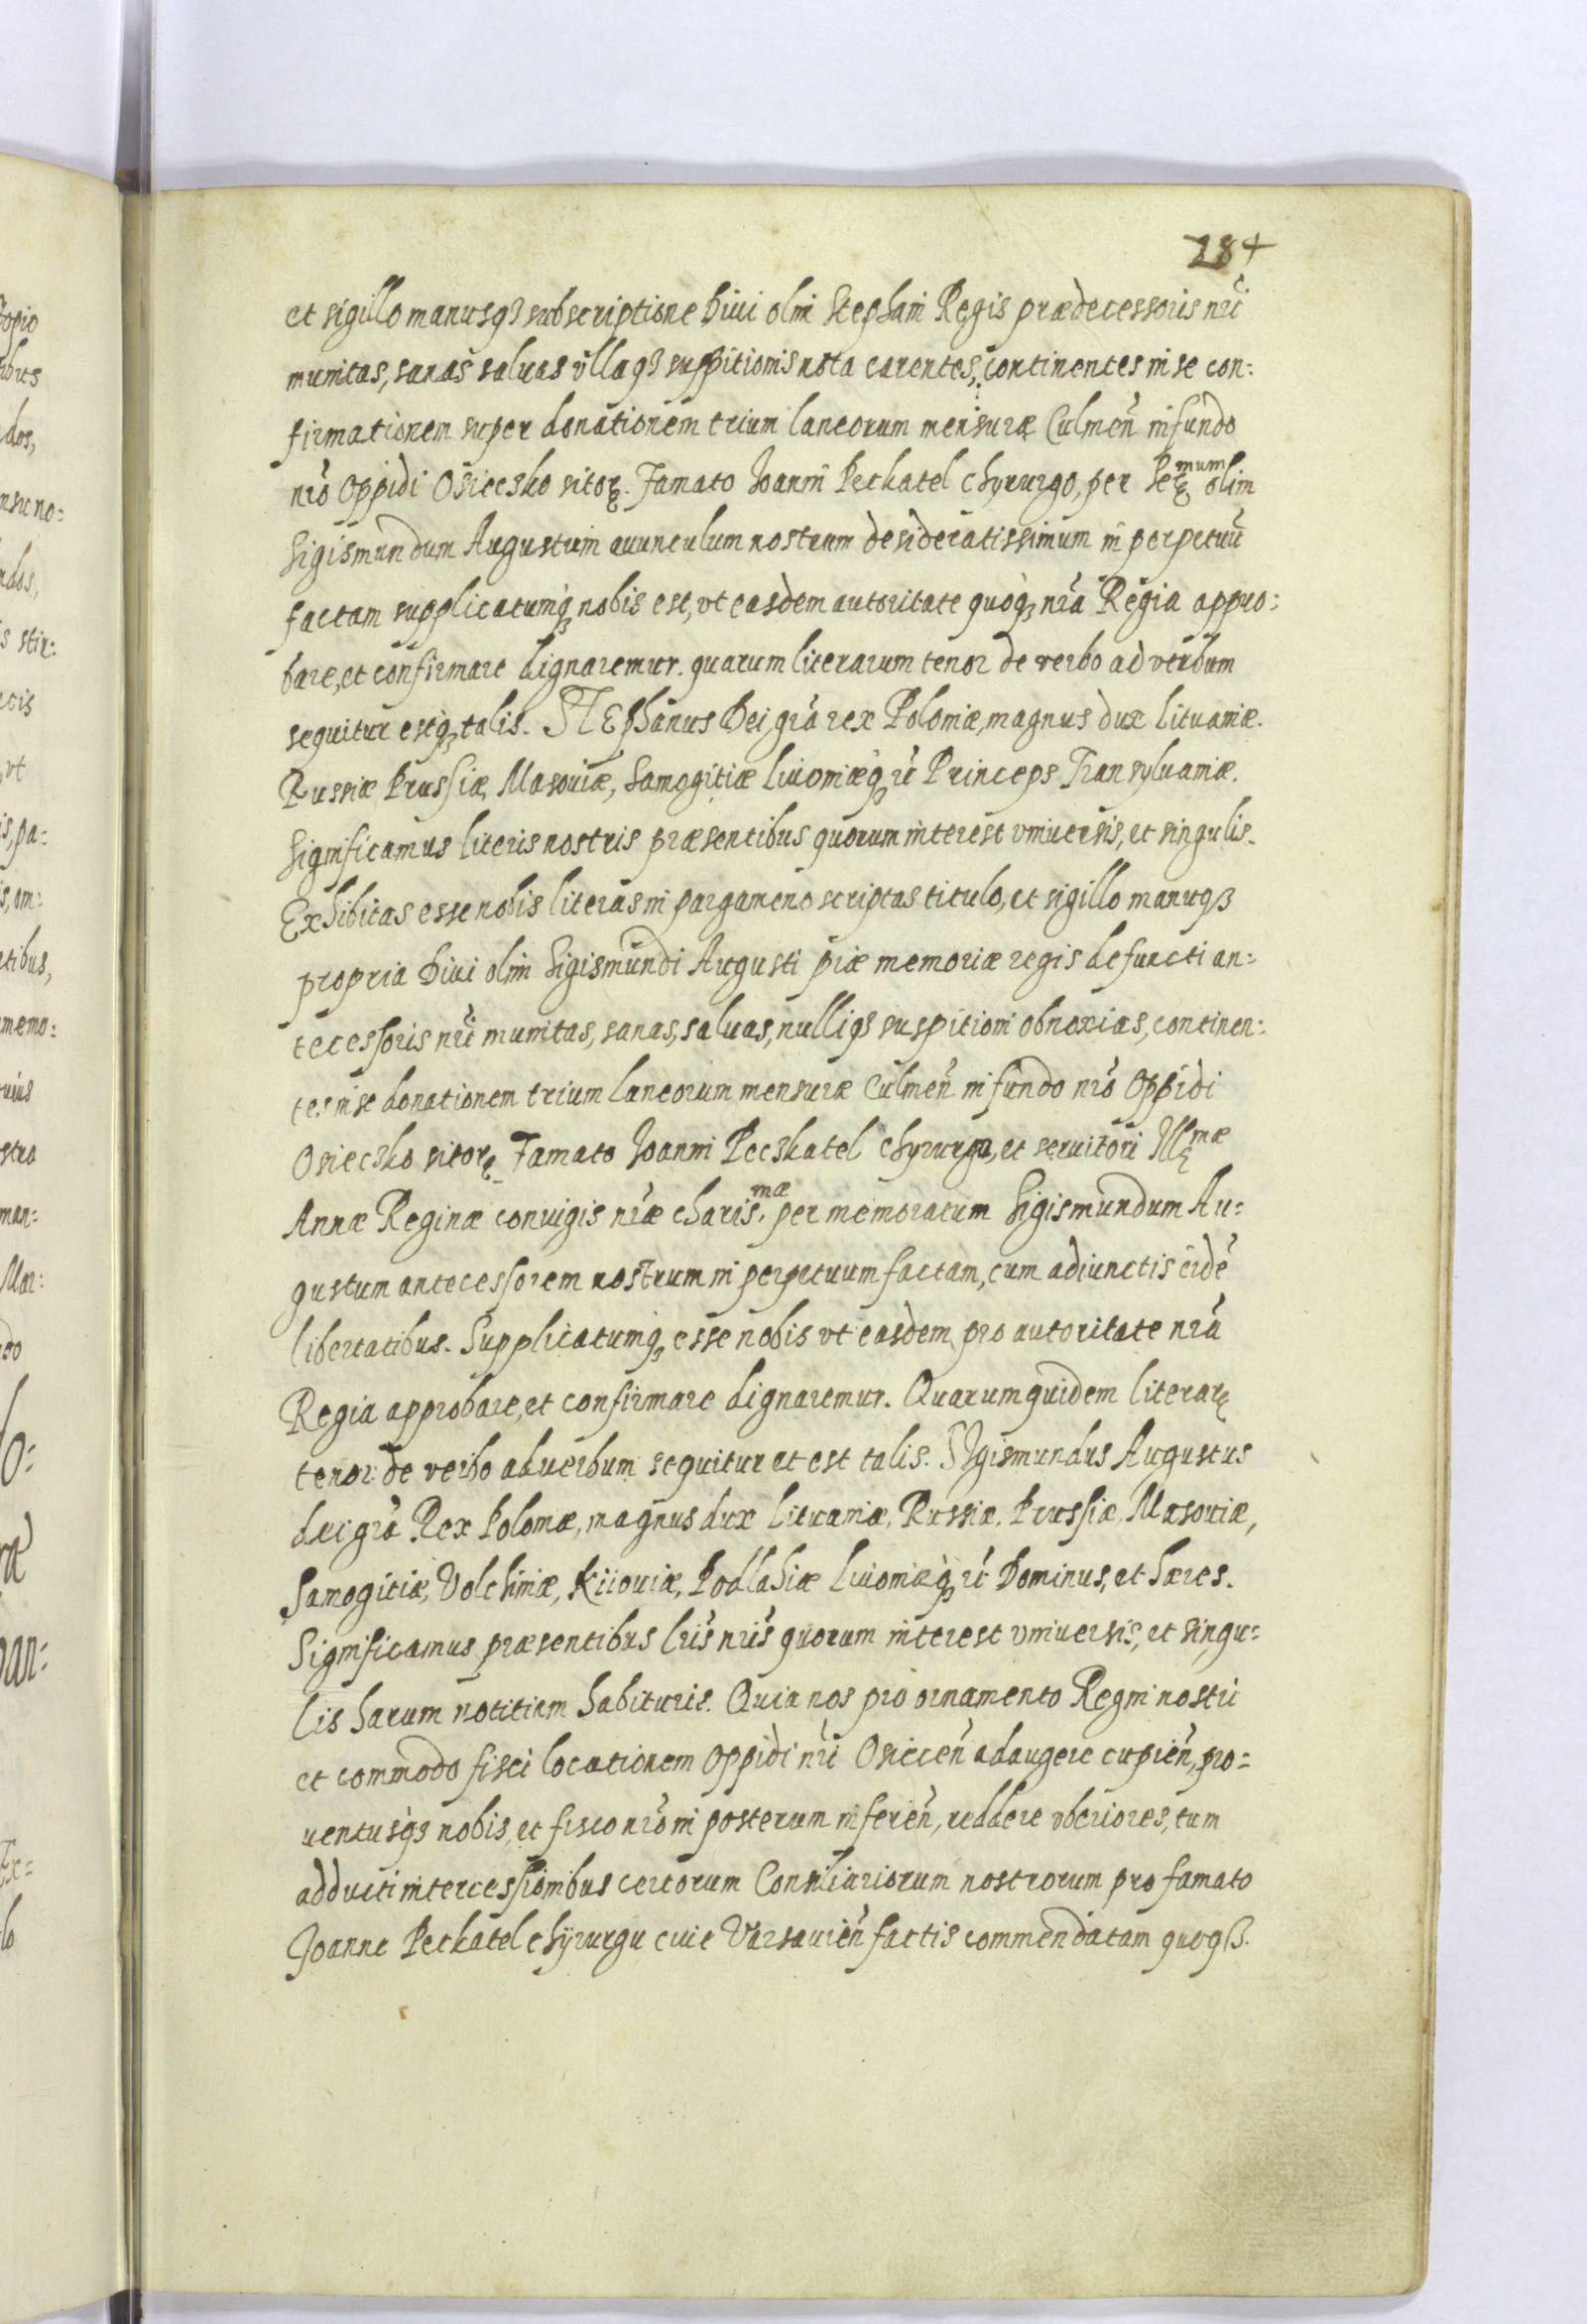 284
et sigillo manusq3 subscriptione Diui olim Stephani Regis prædecessoris nri
munitas, sanas saluas vllaq3 suspitionis nota carentes, continentes in se con:
firmationem super donationem trium laneorum mensuræ Culmen̄ in fundo
nrō Oppidi Osiecsko sitorȩ. Famato Ioanni Peckatel Chyrurgo, per Serᵐᵘᵐ olim
Sigismundum Augustum auunculum nostrum desideratissimum in perpetuū
factam supplicatumq3 nobis est, vt easdem autoritate quoq3 nrā Regia appro:
bare, et confirmare dignaremur. quarum literarum tenor de verbo ad verbum
sequitur estq3 talis. STEphanus Dei grā rex Poloniæ, magnus dux Lituaniæ.
Russiæ Prussiæ, Masouiæ, Samogitiæ Liuoniæq3 rē Princeps Transyluaniæ.
Significamus literis nostris præsentibus quorum interest vniuersis, et singulis.
Exhibitas esse nobis literas in pargameno scriptas titulo, et sigillo manuq3
propria Diui olim Sigismundi Augusti piæ memoriæ regis defuncti an:
tecessoris nrī munitas, sanas, saluas, nulliq3 suspitioni obnoxias, continen:
tes in se donationem trium laneorum mensuræ Culmen̄ in fundo nrō Oppidi
Osiecsko sitorȩ Famato Ioanni Pecskatel Chyrurgo, et seruitori Illᵐæ
Annæ Reginæ coniugis nræ charis.ᵐæ per memoratum Sigismundum Au:
gustum antecessorem nostrum in perpetuum factam, cum adiunctis eidē
libertatibus. Supplicatumq3 esse nobis vt easdem pro autoritate nrā
Regia approbare, et confirmare dignaremur. Quarum quidem literarȩ
tenor de verbo ad uerbum sequitur et est talis. SIgismundus Augustus
dei grā Rex Poloniæ, magnus dux Lituaniæ, Russiæ, Prussiæ, Masouiæ,
Samogitiæ, Volchiniæ, Kiiouiæ, Podlahiæ Liuoniæq3 rē Dominus, et hæres.
Significamus præsentibus lrīs nrīs quorum interest vniuersis, et singu:
lis harum notitiem habituris. Quia nos pro ornamento Regni nostri
et commodo fisci locationem Oppidi nrī Osiecen̄ adaugere cupien̄, pro:
uentusq3 nobis, et fisco nrō in posterum inferen̄, reddere vberiores, tum
adducti intercessionibus certorum Consiliariorum nostrorum pro famato
Joanne Peckatel chÿrurgu ciue Varsauien̄ factis commendatam quoq3.